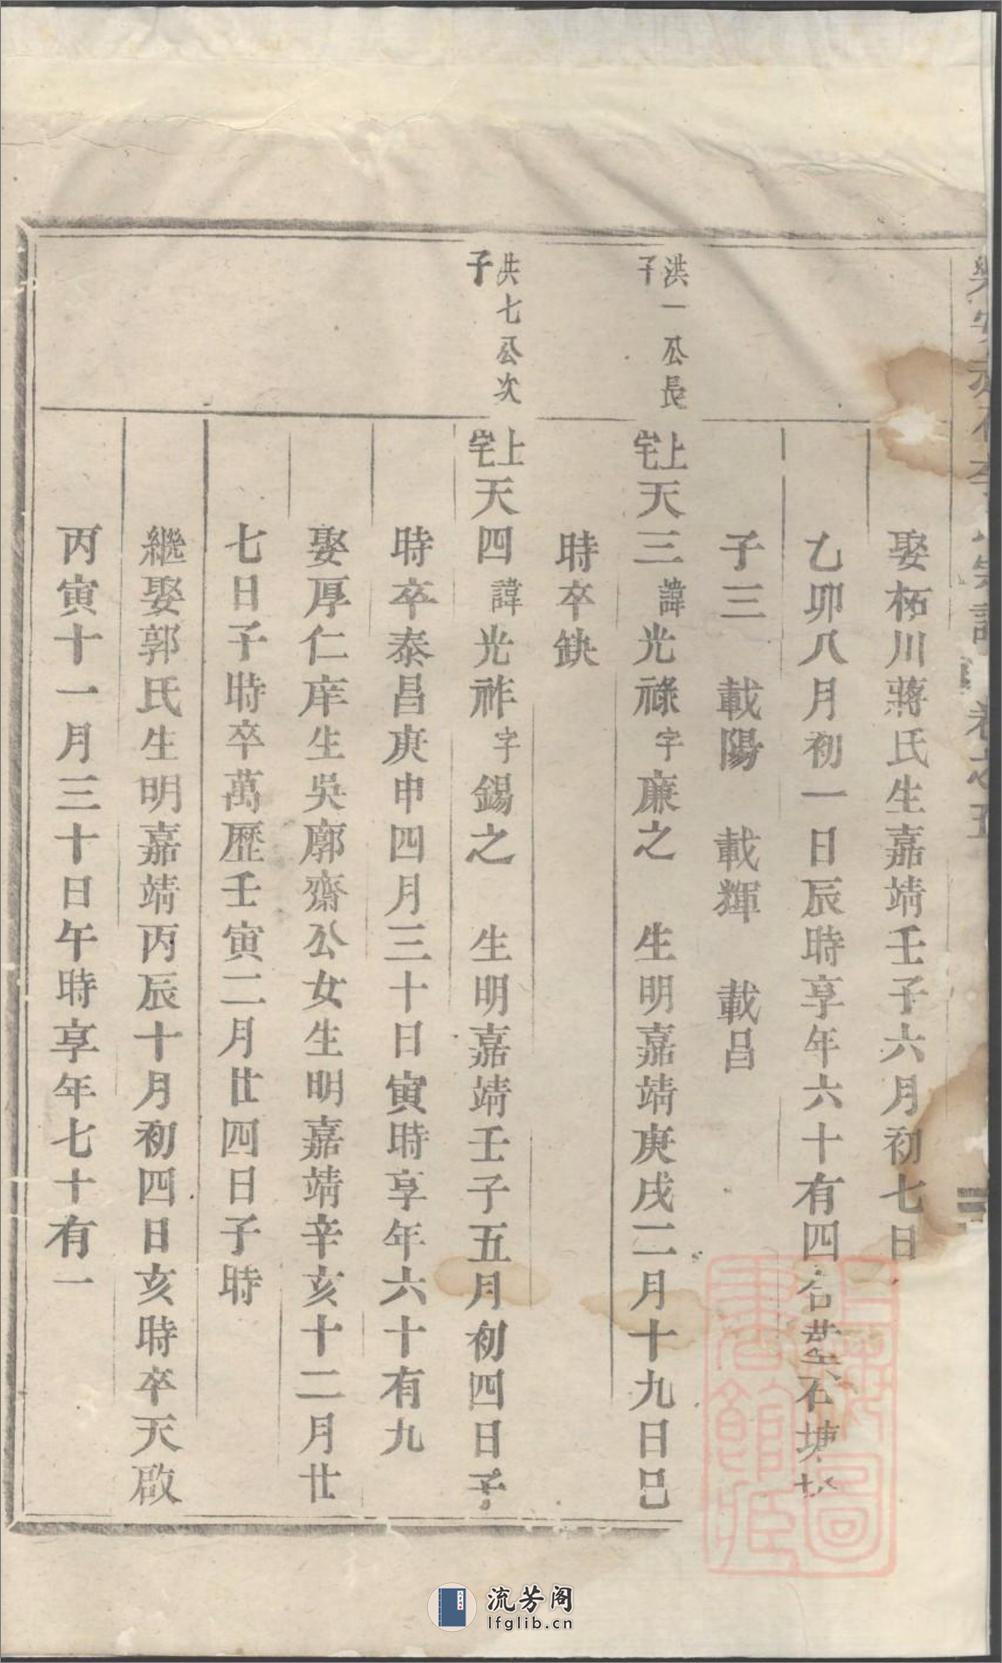 娶柘川蔣氏生嘉靖壬子六月初七日
乙卯八月初一日辰時享年六十有四合葬石塘
子三 載陽 載輝 載昌
洪一公長子
上宅天三諱光祿字廉之 生明嘉靖庚戌二月十九日巳
時卒缺
洪七公次子
上宅天四諱光祚字錫之 生明嘉靖壬子五月初四日子
時卒泰昌庚申四月三十日寅時享年六十有九
娶厚仁庠生吳廓齋公女生明嘉靖辛亥十二月廿
七日子時卒萬歷壬寅二月廿四日子時
繼娶郭氏生明嘉靖丙辰十月初四日亥時卒天啟
丙寅十一月三十日午時享年七十有一
流芳阁
lfglib.cn